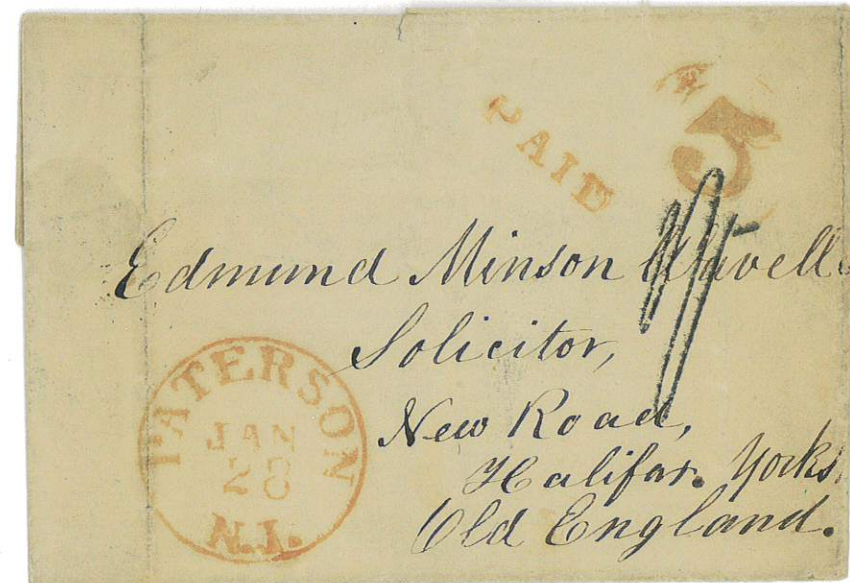 PAID
5
Edmund Minson Wavell
Solicitor,
New Road,
Halifax. Yorks.
Old England.
PATERSON
JAN
28
N.J.